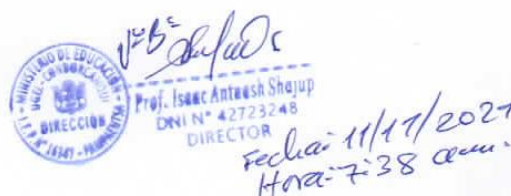 VºBº
MINISTERIO DE EDUCACIÓN
UGEL-CONDORCANQUI
DIRECCIÓN
Prof. Isaac Antuash Shajup
DNI Nº 42723248
DIRECTOR
Fecha: 11/11/2021
Hora: 7:38 am.